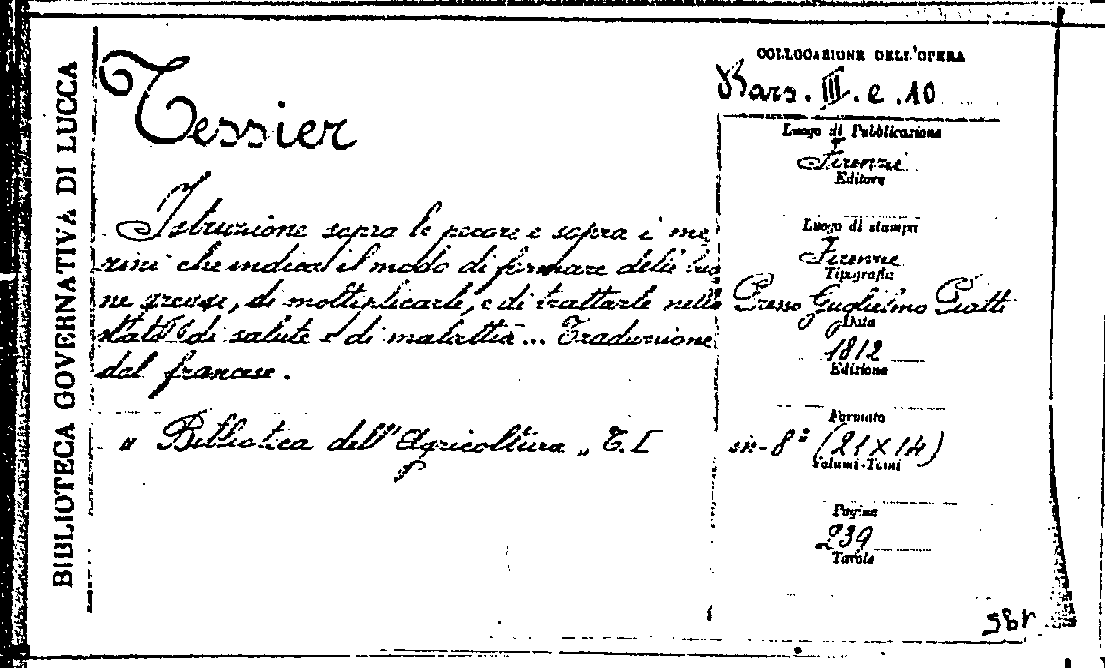 BIBLIOTECA GOVERNATIVA DI LUCCA
Tessier
Istruzione sopra le pecore e sopra i me
rini che indica il modo di formare delle buo
ne gregge, di moltiplicarle, e di trattarle nello
stato di salute e di malattia... Traduzione
dal francese.
" Biblioteca dell'Agricoltura „ T. I
COLLOCAZIONE DELL'OPERA
Bars. III. e. 10
Luogo di Pubblicazione
Firenze
Editore
Luogo di stampa
Firenze
Tipografia
Presso Guglielmo Piatti
Data
1812
Edizione
Formato
in-8° (21 X 14)
Volumi-Tomi
Pagine
239
Tavole